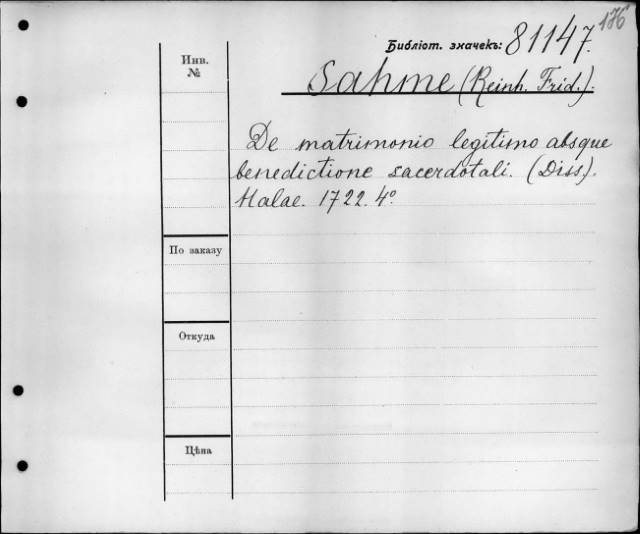 176
Библіот. значекъ: 81147.
Инв.
№
Sahme (Reinh. Frid.).
De matrimonio legitimo absque
benedictione sacerdotali. (Diss).
Halae. 1722. 4º
По заказу
Откуда
Цѣна